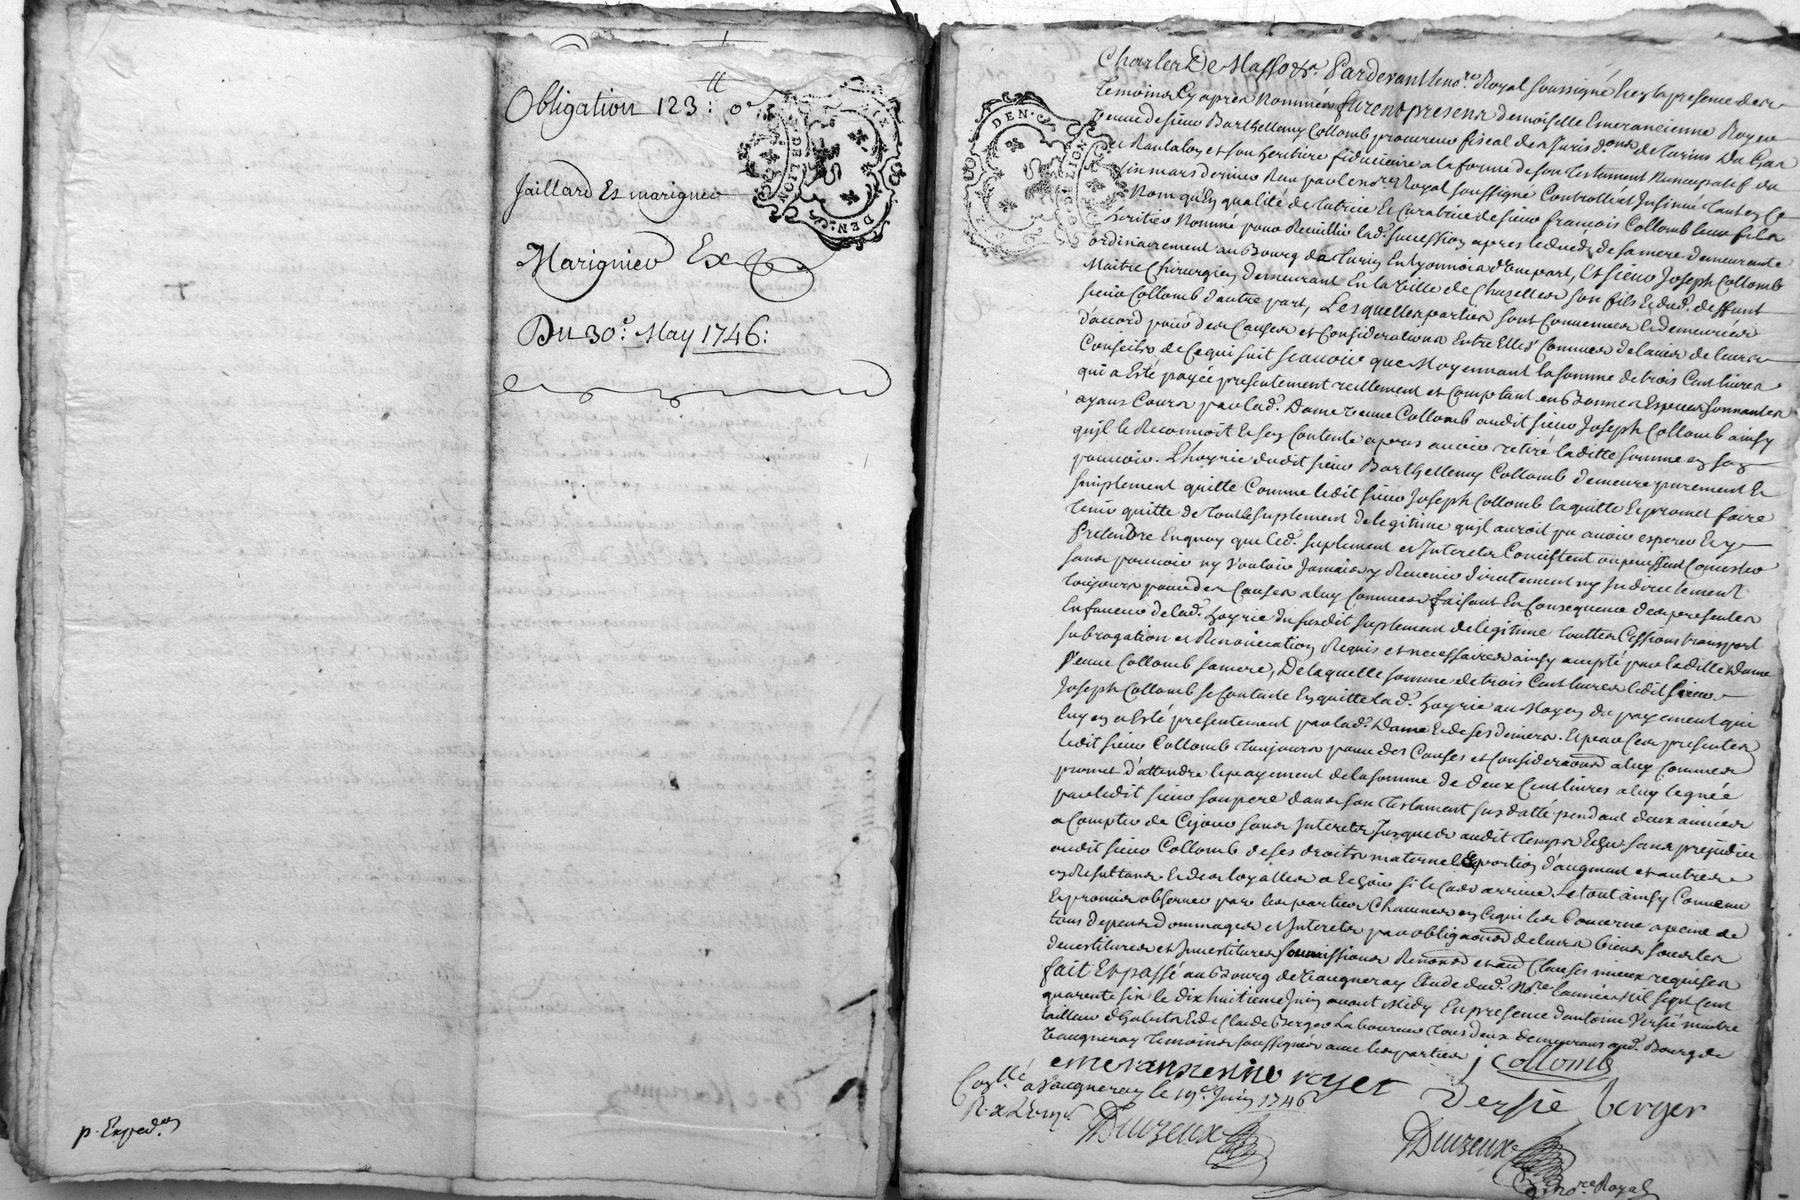 Obligation 123:ᵗᵗ 0ˢ
Jaillard Et marignier
Marignier Ex
Du 30ᵉ: May 1746:
p. Exped.on
DEN.
LION
Charles De Masso &ca. Pardevant le no.re Royal soussigné & en la presence des
Temoins Cy apres Nommés furent presens demoiselle Emerancienne Royer
veuve de sieur Barthellemy Collomb procureur fiscal des jurisd.ons de
et Rantalon et son heritiere fiduciaire a la forme de son testament Nuncupatif du
mars dernier Receu par le no.re Royal soussigné Controllé et Insinué tant en Ce
Nom qu'En qualité de tutrice Et Curatrice de sieur francois Collomb leur fils
heritier Nommé pour Recueillir lad. succession apres le decés de sa mere demeurante
ordinairement au Bourg de En Lyonnois d'une part, Et sieur Joseph Collomb
Maitre Chirurgien demeurant En la ville de Chazelles son fils & dud. deffunt
sieur Collomb d'autre part, Lesquelles parties sont Convenues & demeurées
d'accord pour des Causes et Considerations Entre Elles Connues de l'avis de leurs
Conseils de Ce qui suit scauoir que Moyennant la somme de trois Cent livres
qui a Esté payée presentement reellement et Comptant en Bonnes Especes sonnantes
ayans Cours par lad. Dame veuve Collomb audit sieur Joseph Collomb ainsy
qu'jl le Reconnoit & s'en Contente apres auoir retiré laditte somme en son
pouuoir. L'hoyrie dudit sieur Barthellemy Collomb demeure purement Et
simplement quitte Comme ledit sieur Joseph Collomb la quitte Et promet faire
tenir quitte de tout le suplement de legitime qu'jl auroit pu auoir esperer Et y
Pretendre En quoy que led. suplement et Interets Consistent ou puissent Consister
sans pouuoir ny vouloir Jamais y Reuenir directement ny Indirectement
toujours pour des Causes a luy Connues faisant En Consequence des presentes
En faueur de lad. hoyrie du susdit suplement de legitime touttes Cessions transport
subrogation et Renonciation Requis et necessaires ainsy accepté par laditte Dame
veuve Collomb sa mere, De laquelle somme de trois Cent livres ledit sieur
Joseph Collomb se Contente En quitte lad. hoyrie au Moyen du payement qui
luy en a Esté presentement par lad. Dame & de ses deniers. Et par Ces presentes
ledit sieur Collomb toujours pour des Causes et Considera.ons a luy Connues
promet d'attendre le payement de la somme de deux Cent livres a luy leguée
par ledit sieur son pere dans son testament sus datté pendant deux années
a Compter de Cejour sans Interets Jusques audit temps Et ce sans prejudice
audit sieur Collomb de ses droits maternels & portion d'augment et autres
en Resultans & des loyalles a Echoir si le Cas arrive. Le tout ainsy Convenu
Et promis obseruer par les parties Chacunes en Ce qui les Concerne a peine de
tous depens Dommages et Interets par obliga.ons de leurs biens sous les
devestitures et Investitures soumissions Renon.ons et au.es Clauses mieux requises
fait Et passé au Bourg de Vaugneray Etude dud. No.re l'année Mil sept Cent
quarente six le dix huitieme Juin avant Midy En presence d'antoine Versié maitre
tailleur d'habits & de Claude Berger Laboureur tous deux demeurans aud. Bourg de
Vaugneray temoins soussignés avec les parties
emeranzenne royer j Collomb
Versié berger
Con.llé a Vaugneray le 19.e Juin 1746
Duvzeux
Duvzeux
no.re Royal